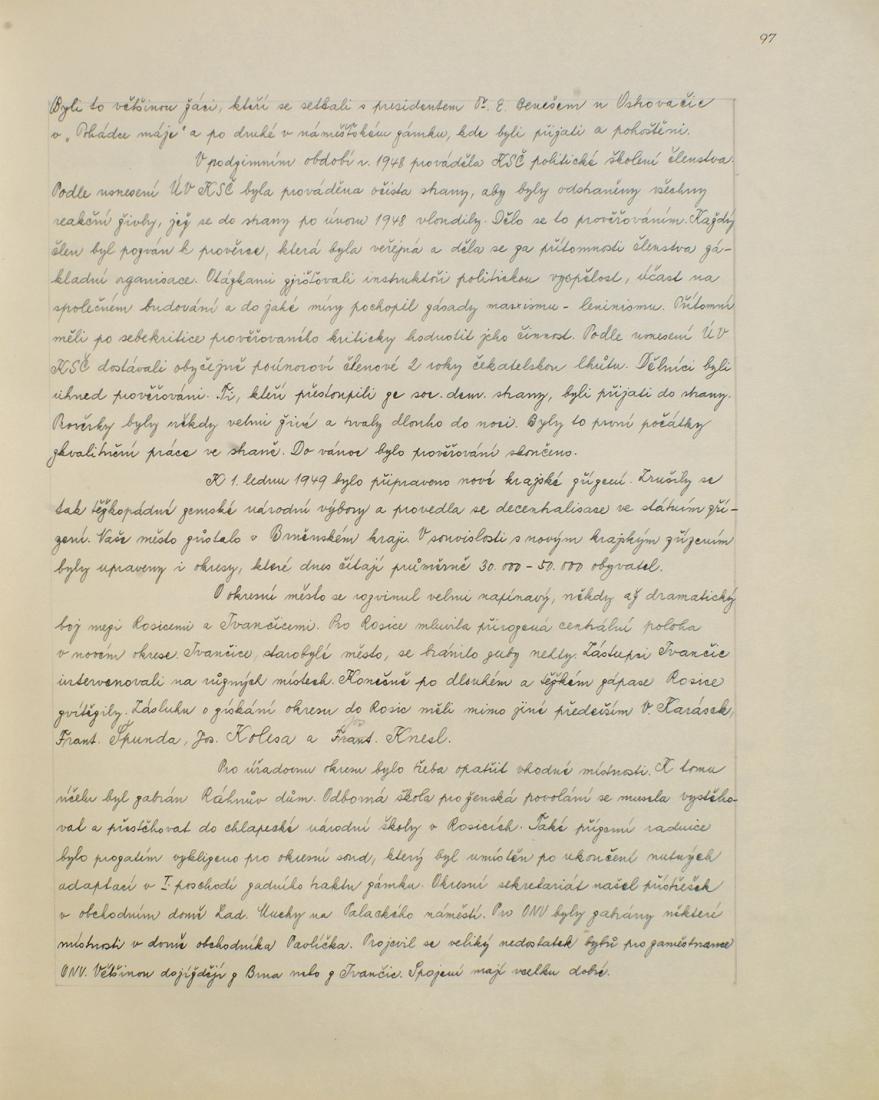 97
Byli to většinou žáci, kteří se setkali s presidentem Dr. E. Benešem u Oskovačic
o „Pohádce máje" a po druhé v náměšťském zámku, kde byli přijati a pohoštěni.
V podzimním období r. 1948 prováděla KSČ politické školení členstva.
Podle usnesení ÚV KSČ byla prováděna očista strany, aby byly odstraněny všechny
reakční živly, jež se do strany po únoru 1948 vloudily. Dělo se to prověřováním. Každý
člen byl pozván k prověrce, která byla veřejná a děla se za přítomnosti členstva zá-
kladní organisace. Otázkami zjišťovali instruktoři politickou vyspělost, účast na
společném budování a do jaké míry pochopil zásady marxismu - leninismu. Přítomní
měli po sebekritice prověřovaného kriticky hodnotit jeho činnost. Podle usnesení ÚV
KSČ dostávali obyčejně poúnoroví členové 2 roky čekatelskou lhůtu. Dělníci byli
ihned prověřováni. Ti, kteří přestoupili ze soc. dem. strany, byli přijati do strany.
Prověrky byly někdy velmi živé a trvaly dlouho do noci. Byly to první počátky
zkvalitnění práce ve straně. Do vánoc bylo prověřování skončeno.
K 1. lednu 1949 bylo připraveno nové krajské zřízení. Zrušily se
tak těžkopádné zemské národní výbory a provedla se decentralisace ve státním zří-
zení. Naše město zůstalo v Brněnském kraji. V souvislosti s novým krajským zřízením
byly upraveny i okresy, které dnes čítají průměrně 30.000 - 50.000 obyvatel.
O okresní město se rozvinul velmi napínavý, někdy až dramatický
boj mezi Rosicemi a Ivančicemi. Pro Rosice mluvila přirozená centrální poloha
v novém okrese. Ivančice, starobylé město, se bránilo zuby nehty. Zástupci Ivančic
intervenovali na různých místech. Konečně po dlouhém a těžkém zápase Rosice
zvítězily. Zásluhu o získání okresu do Rosic měli mimo jiné především V. Karásek,
Frant. Špunda, Jos. Kolesa a Frant. Jos. Knesl.
Pro úřadovnu okresu bylo třeba opatřit vhodné místnosti. K tomu
účelu byl zabrán Ráhnův dům. Odborná škola pro ženská povolání se musela vystěho-
vat a přestěhovat do chlapecké národní školy v Rosicích. Také přízemí radnice
bylo prozatím vyklizeno pro okresní soud, který byl umístěn po ukončení nutných
adaptací v I. poschodí zadního traktu zámku. Okresní sekretariát našel přístřešek
v obchodním domě Lad. Muchy na Palackého náměstí. Pro ONV byly zabrány některé
místnosti v domě obchodníka Pavlíčka. Projevil se veliký nedostatek bytů pro zaměstnance
ONV. Většinou dojíždějí z Brna nebo z Ivančic. Spojení mají vcelku dobré.